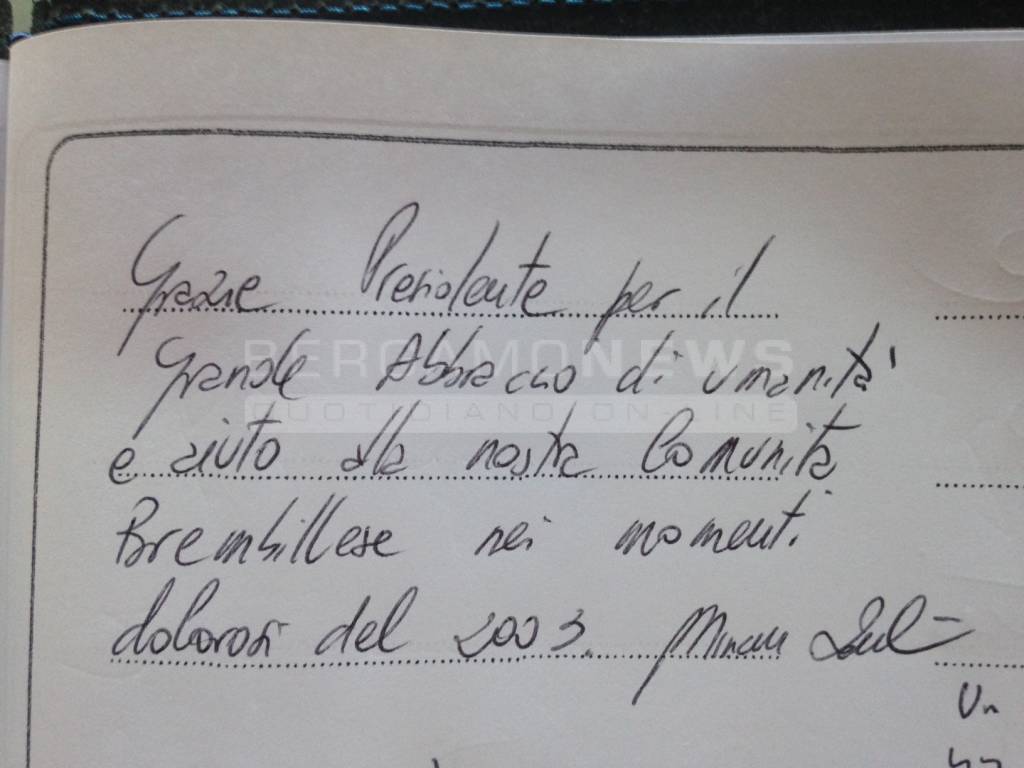 Grazie Presidente per il
Grande Abbraccio di umanità
e aiuto alla nostra Comunità
Brembillese nei momenti
dolorosi del 2003.
BERGAMONEWS
QUOTIDIANO ON-LINE
Un